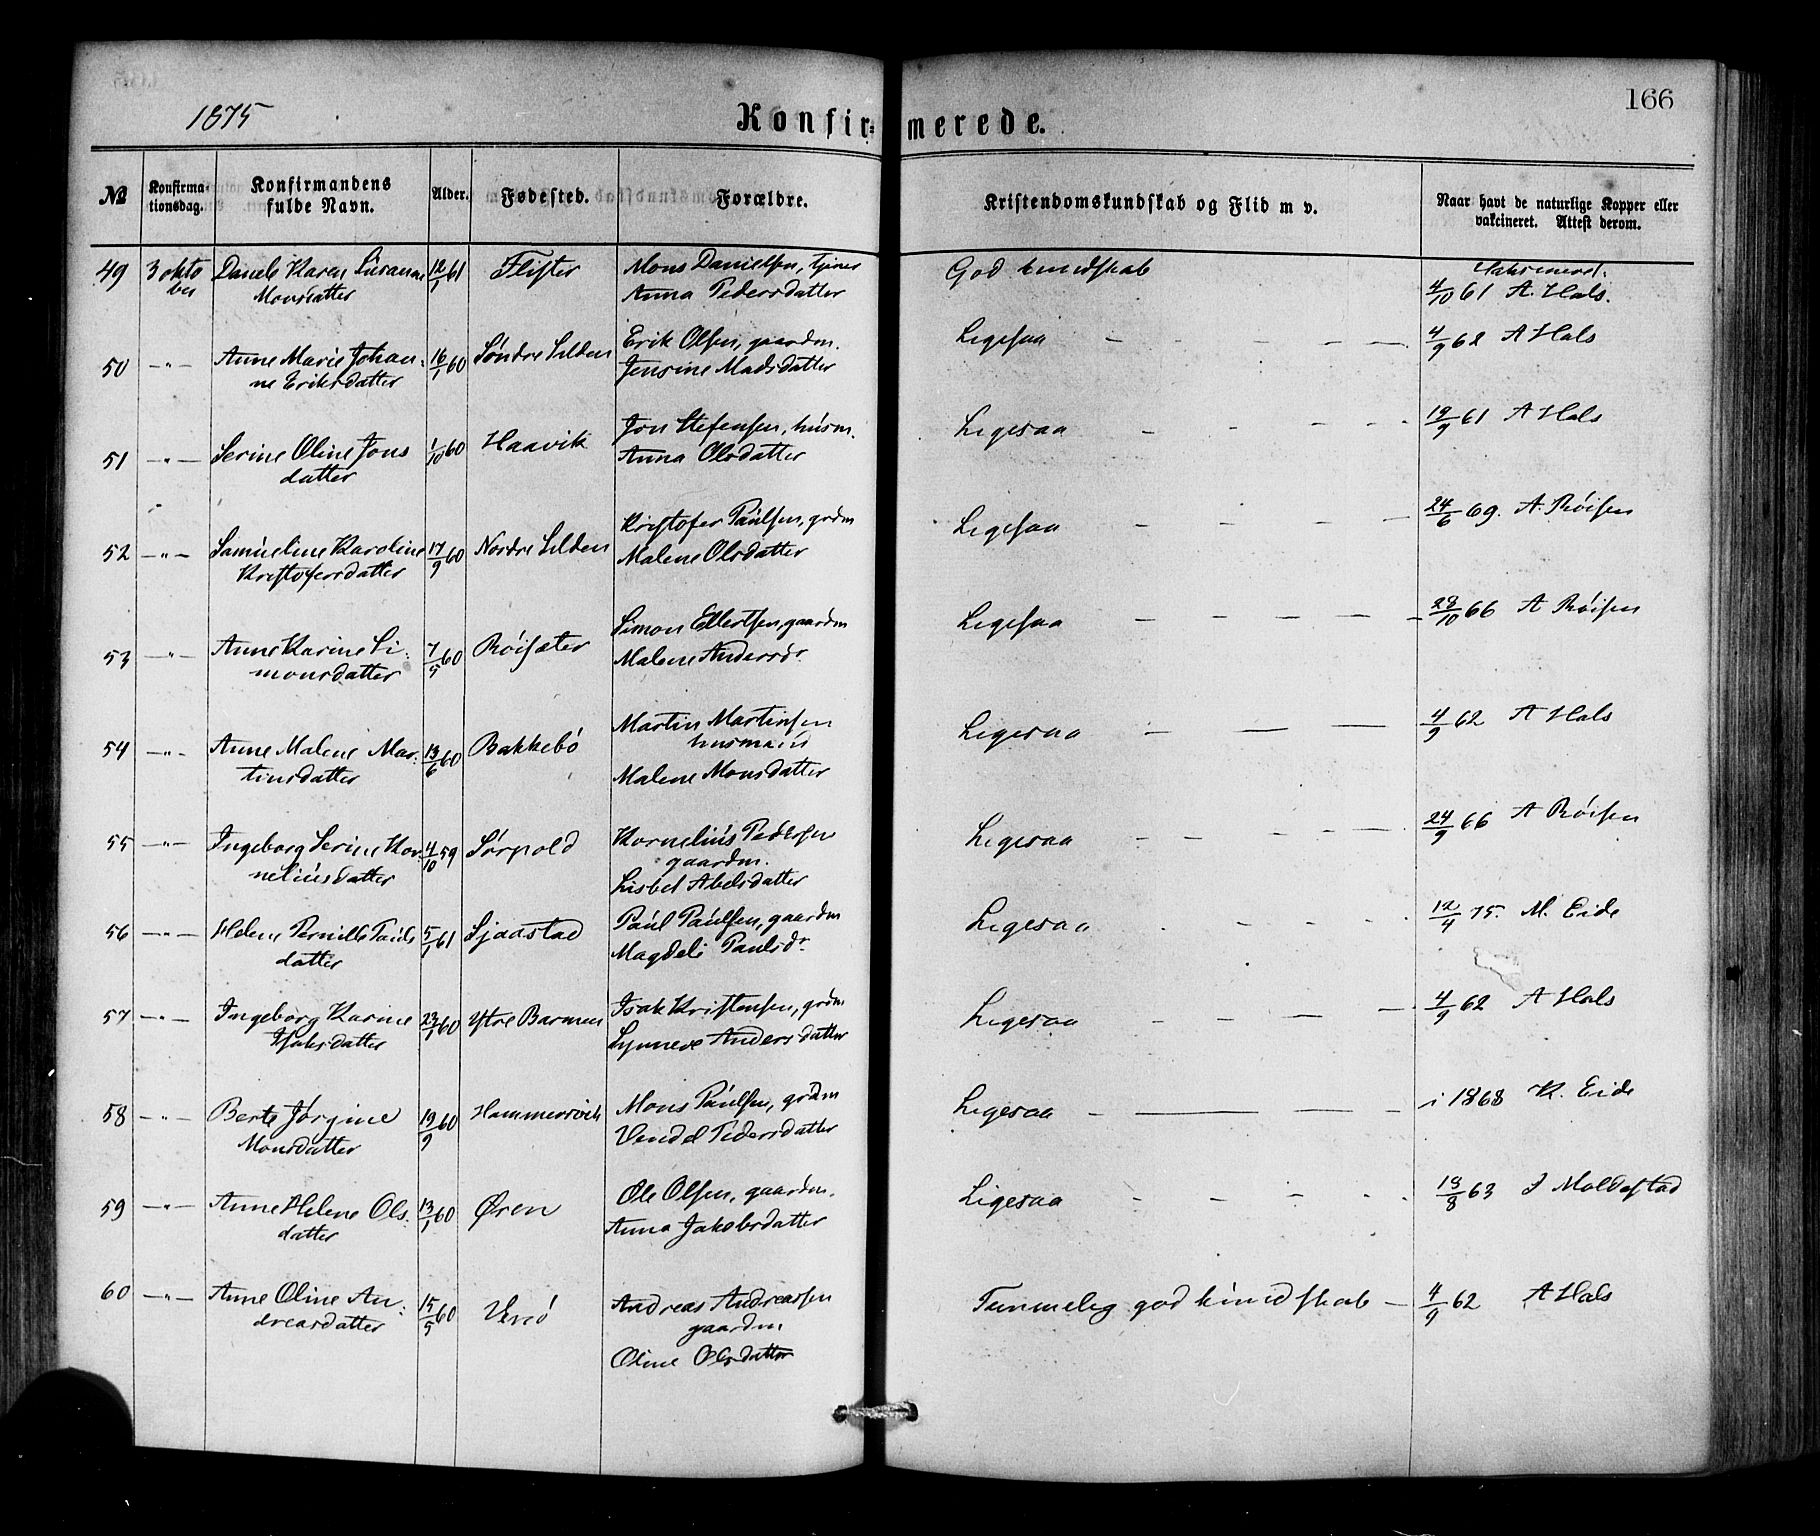 166
1875
Konfirmerede.
№ Konfirmationsdag. Konfirmandens fulde Navn. Alder. Fødested. Forældre. Kristendomskundskab og Flid m v. Naar havt de naturlige Kopper eller vakcineret. Attest derom.
49 3 okto Danele Karen Susanne 12/1 61 Flister Mons Danielsen, tjener God kundskab
ber Monsdatter Anna Pedersdatter 4/10 61 A. Hals.
50 —"— Anne Marie Johan- 16/1 60 Søndre Silden Erik Olsen, gaardm. Ligesaa — — — — 4/9 62 A Hals
ne Eriksdatter Jensine Madsdatter
51 —"— Serine Oline Jons 1/10 60 Haavik Jon Stefensen, husm. Ligesaa — — — — 19/9 61 A Hals
datter Anna Olsdatter
52 —"— Samueline Karoline 17/9 60 Nordre Silden Kristofer Paulsen, grdm Ligesaa — — — — 24/6 69. A. Røisen
Kristofersdatter Malene Olsdatter
53 —"— Anne Karine Si- 7/5 60 Røisæter Simon Ellertsen, gaardm Ligesaa — — — — 28/10 66 A Røisen
monsdatter Malene Andersdr
54 —"— Anne Malene Mar- 13/6 60 Bakkebø Martin Martinsen Ligesaa — — — 4/9 62 A Hals
tinsdatter husmann
Malene Monsdatter
55 —"— Ingeborg Serine Kor- 4/10 59 Sørpold Kornelius Pedersen Ligesaa — — — — 24/9 66 A Røisen
neliusdatter gaardm.
Lisbet Abelsdatter
56 —"— Helene Pernille Pauls 5/1 61 Sjaastad Paul Paulsen, gaardm Ligesaa — — — 12/4 75. M. Eide
datter Magdeli Paulsdr
57 —"— Ingeborg Karine 23/1 60 Ytre Barmen Isak Kristensen, grdm Ligesaa — — — — 4/9 62 A Hals
Isaksdatter Synneve Andersdatter
58 —"— Berte Jørgine 19/9 60 Hammersvik Mons Paulsen, grdm Ligesaa — — — — i 1868 K. Eide
Monsdatter Vendel Pedersdatter
59 —"— Anne Helene Ols- 13/1 60 Øren Ole Olsen, gaardm. Ligesaa — — — — 13/8 63 J Moldestad
datter Anna Jakobsdatter
60 —"— Anne Oline An- 15/5 60 Venø Andreas Andreassen Temmelig god kundskab — 4/9 62 A Hals
dreasdatter gaardm
Oline Olsdatter